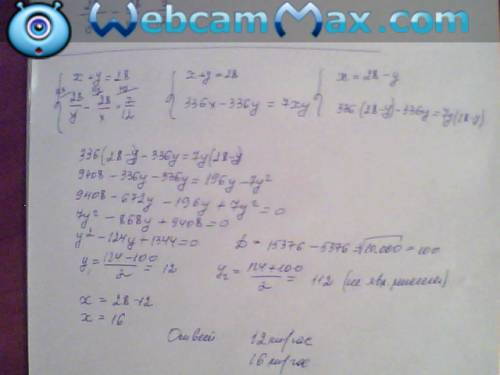 WebcamMax.com
x + y = 28
28/y - 28/x = 7/12
x + y = 28
336x - 336y = 7xy
x = 28 - y
336(28-y) - 336y = 7y(28-y)
336(28-y) - 336y = 7y(28-y)
9408 - 336y - 336y = 196y - 7y²
9408 - 672y - 196y + 7y² = 0
7y² - 868y + 9408 = 0
y² - 124y + 1344 = 0
D = 15376 - 5376 = √10.000 = 100
y₁ = (124 - 100)/2 = 12
y₂ = (124 + 100)/2 = 112 (не явл. решением)
x = 28 - 12
x = 16
Ответ 12км/час
16км/час